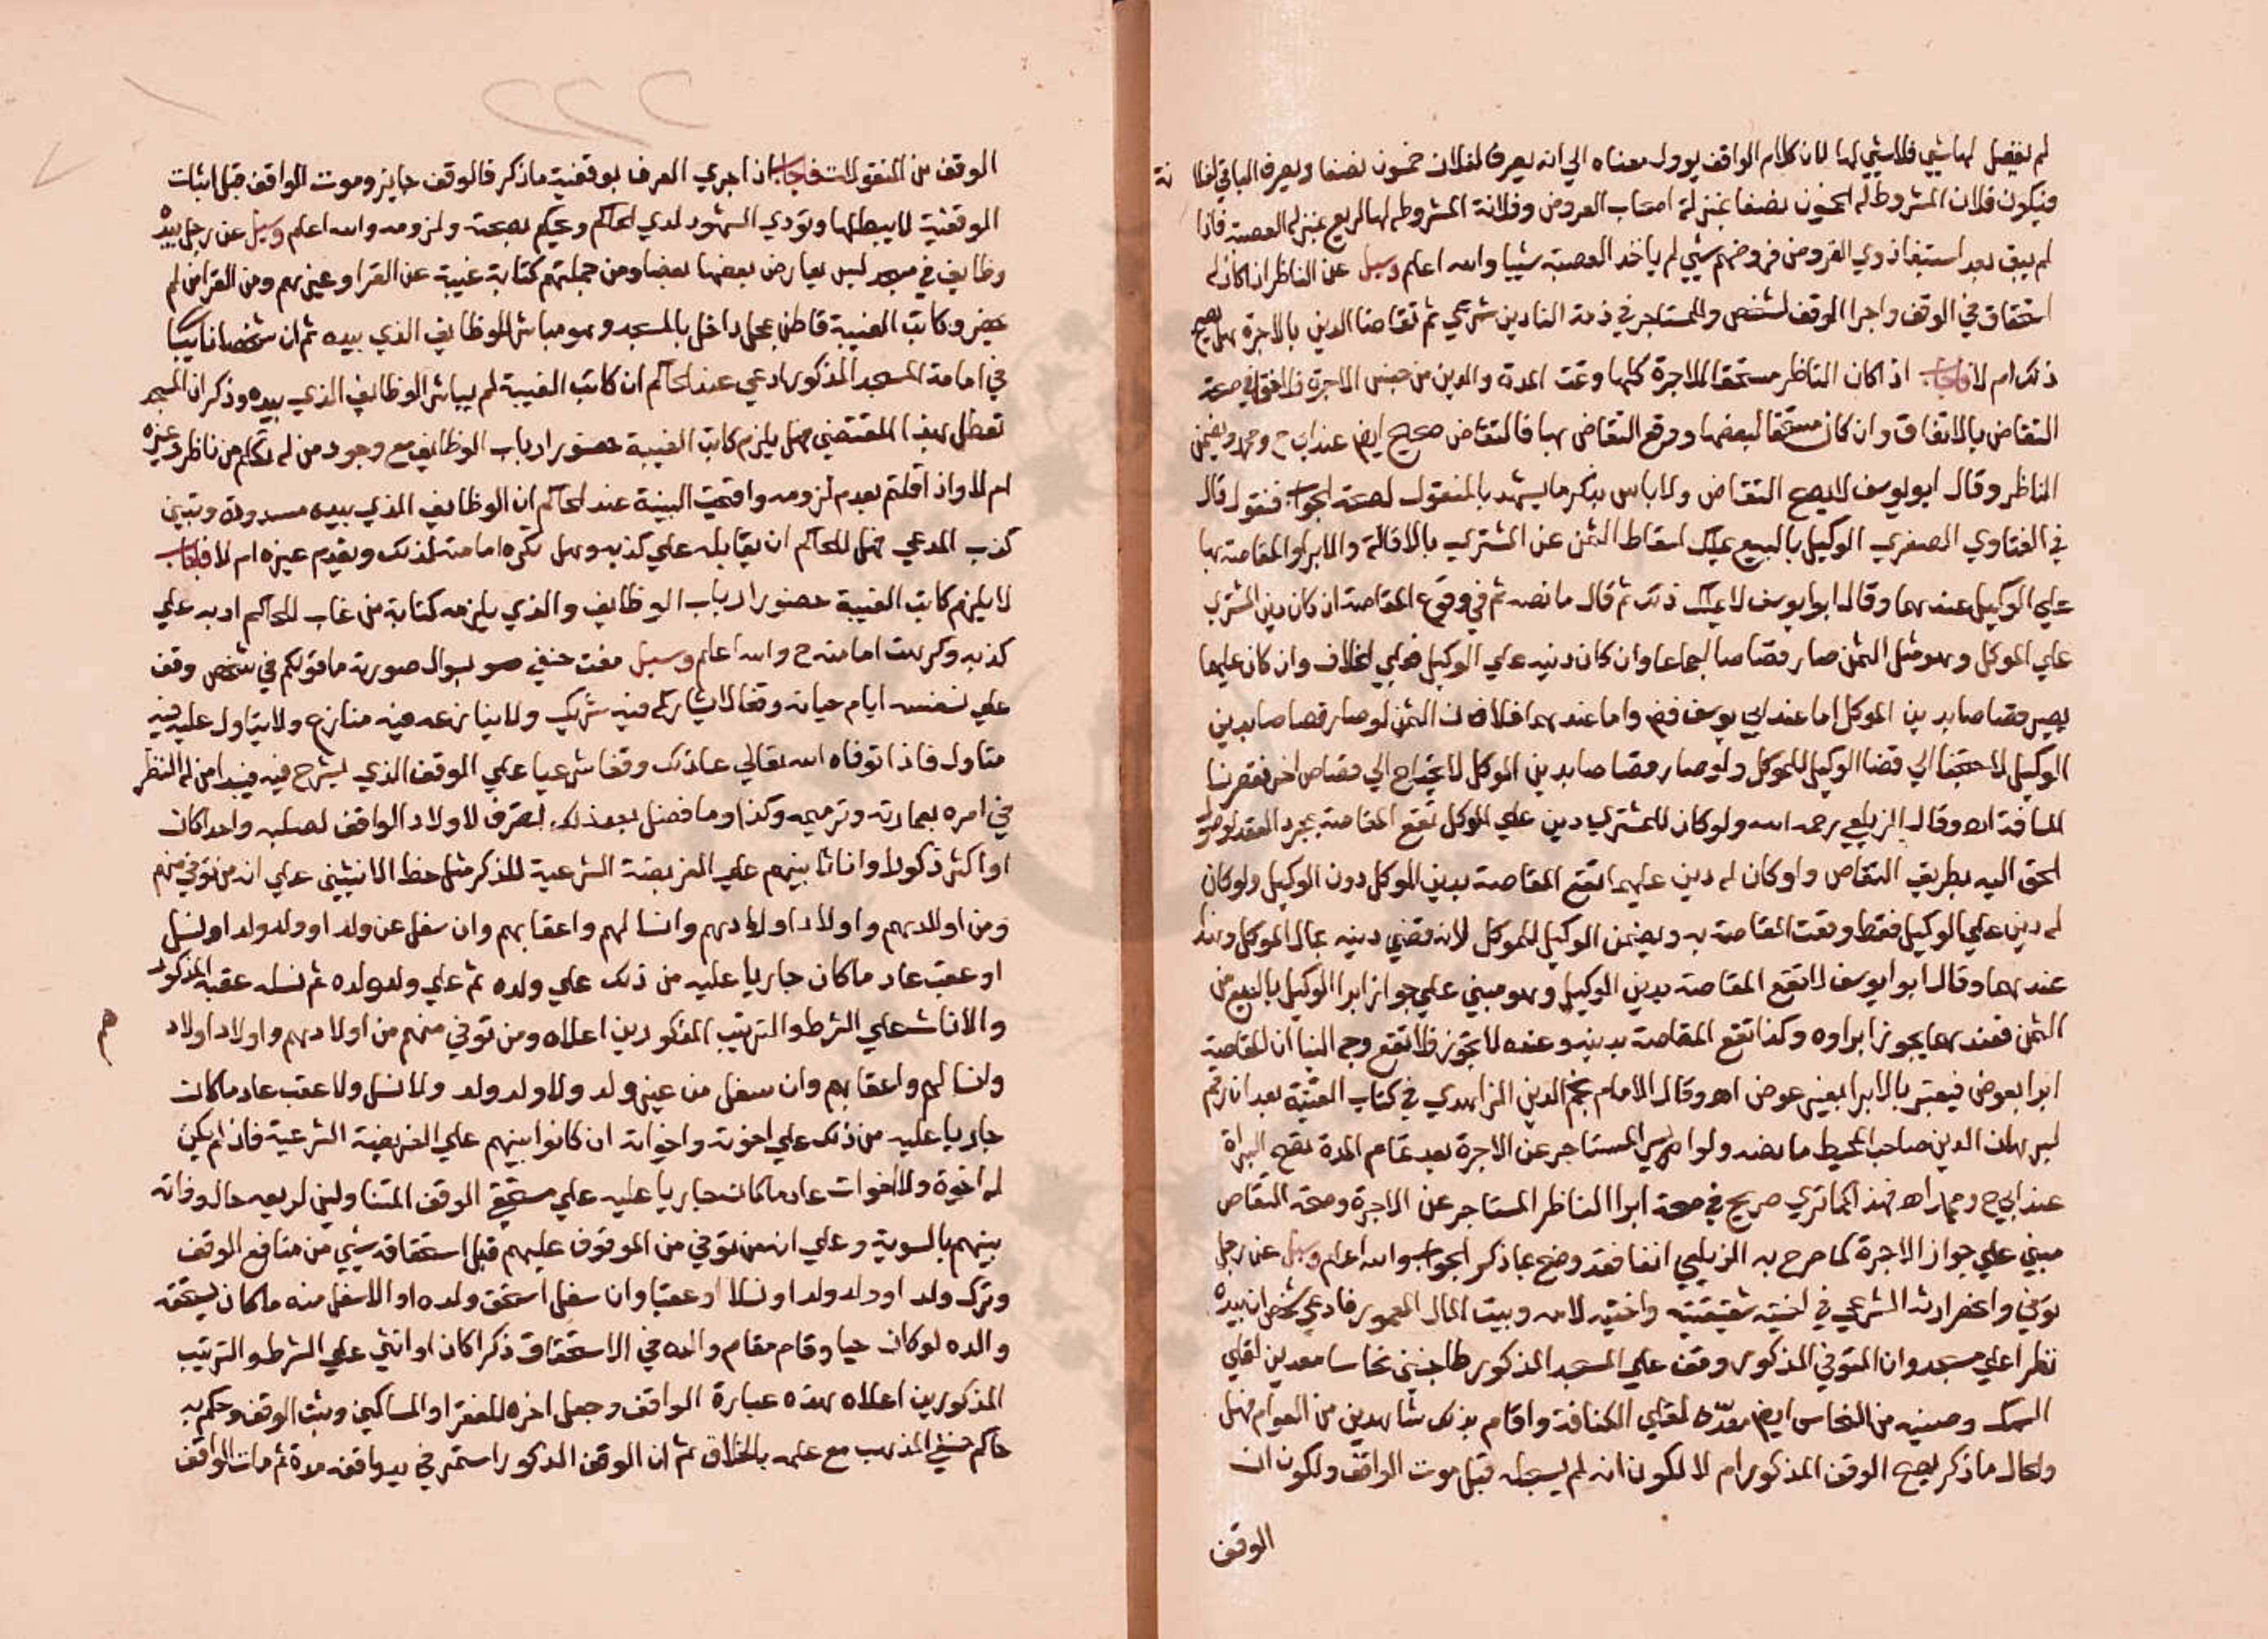 لم يفضل لها شيي فلا شيي لها لان كلام الواقف يوول معناه الي انه يصرف لفلان خمسون نصفا ويصرف الباقي لفلا نة
فيكون فلان المشروط له الخمسون نصفا بمنزلة اصحاب الفروض وفلانة المشروط لها الريع بمنزلة العصبة فاذا
لم يبق بعد استيفا ذوي الفروض فروضهم شيي لم ياخذ العصبة شييا والله اعلم وسيل عن الناظر اذا كان له
استحقاق في الوقف واجرا الوقف لشخص وللمستاجر في ذمة الناظر دين شرعي ثم تقاصا الدين بالاجرة هل يصح
ذلك ام لا فاجاب اذا كان الناظر مستحقا للاجرة كلها وتمت المدة والدين من جنس الاجرة فلا خفا في صحة
التقاص بالاتفاق وان كان مستحقا لبعضها ووقع التقاص بها فالتقاص صحيح ايضا عند ابي ح ومحمد ويضمن
الناظر وقال ابو يوسف لا يصح التقاص ولا باس بذكر ما يشهد بالمنقول لصحة الجواب فنقول قال
في الفتاوي الصغري الوكيل بالبيع يملك اسقاط الثمن عن المشتري بالاقالة والابرا والمقاصة بما
علي الوكيل عندهما وقال ابو يوسف لا يملك ذلك ثم قال ما نصه ثم في وقوع المقاصة ان كان دين المشتري
علي الموكل وهو مثل الثمن صار قصاصا اجماعا وان كان دينه علي الوكيل فعلي الخلاف وان كان عليهما
يصير قصاصا بدين الموكل اما عند ابي يوسف فض واما عندهما فلان الثمن لو صار قصاصا بدين
الوكيل لاحتجنا الي قضا الوكيل للموكل ولو صار قصاصا بدين الموكل لا يحتاج الي قصاص اخر فقصرنا
المسافة اه وقال الزيلعي رحمه الله ولو كان للمشتري دين علي الموكل تقع المقاصة بمجرد العقد لوصول
الحق اليه بطريق التقاص ولو كان له دين عليهما تقع المقاصة بدين الموكل دون الوكيل ولو كان
له دين علي الوكيل فقط وقعت المقاصة به ويضمن الوكيل للموكل لانه قضي دينه بمال الموكل وهذا
عندهما وقال ابو يوسف لا تقع المقاصة بدين الوكيل وهو مبني علي جواز ابرا الوكيل بالبيع من
الثمن فعندهما يجوز ابراوه وكذا تقع المقاصة بدينه وعنده لا يجوز فلا تقع وجه البنا ان المقاصة
ابرا بعوض فيعتبر بالابرا بغير عوض اه وقال الامام نجم الدين الزاهدي في كتاب القنية بعد ان رقم
لبرهان الدين صاحب المحيط ما نصه ولو ابري المستاجر عن الاجرة بعد تمام المدة تصح البراة
عند ابي ح ومحمد اه فهذا كما تري صريح في صحة ابرا الناظر المستاجر عن الاجرة وصحة التقاص
مبني علي جواز الاجرة كما صرح به الزيلعي انفا فقد وضح بما ذكر الجواب والله اعلم وسيل عن رجل
توفي وانحصر ارثه الشرعي في اختيه شقيقتيه واختيه لامه وبيت المال المعمور فادعي شخص ان بيده
نظرا علي مسجد وان المتوفي المذكور وقف علي المسجد المذكور طاجنين نحاسا معدين لقلي
السمك وصينيه من النحاس ايضا معدة لقلي الكنافة واقام بذلك شاهدين من العوام فهل
والحال ما ذكر يصح الوقف المذكور ام لا لكون انه لم يسجله قبل موت الواقف ولكون ان
الوقف
٢٢٢
الوقف من المنقولات فاجاب اذا جري العرف بوقفية ما ذكر فالوقف جايز وموت الواقف قبل اثبات
الوقفية لا يبطلها وتودي الشهود لدي الحاكم ويحكم بصحته ولزومه والله اعلم وسيل عن رجل بيده
وظايف في مسجد ليس يعارض بعضها بعضا ومن جملتهم كتابة غيبة عن القرا وغيرهم ومن القرا من لم
يحضر وكاتب الغيبة قاطن بمحل داخل بالمسجد وهو مباشر الوظايف الذي بيده ثم ان شخصا نايبا
في امامة المسجد المذكور ادعي عند الحاكم ان كاتب الغيبة لم يباشر الوظايف الذي بيده وذكر ان المسجد
تعطل بهذا المقتضي فهل يلزم كاتب الغيبة حضور ارباب الوظايف مع وجود من له تكلم من ناظر وغيره
ام لا واذا قلتم بعدم لزومه واقيمت البينة عند الحاكم ان الوظايف الذي بيده مسدودة وتبين
كذب المدعي فهل للحاكم ان يقابله علي كذبه وهل تكره امامته لذلك ويقدم غيره ام لا فاجاب
لا يلزم كاتب الغيبة حضور ارباب الوظايف والذي يلزمه كتابة من غاب للحاكم ادبه علي
كذبه وكرهت امامته ح والله اعلم وسيل مفت حنفي سوال صورته ما قولكم في شخص وقف
علي نفسه ايام حياته وقفا لا يشاركه فيه شريك ولا ينازعه فيه منازع ولا يتاول عليه فيه
متاول فاذا توفاه الله تعالي عاد ذلك وقفا شرعيا علي الوقف الذي يشرح فيه فيبدا من له النظر
في امره بعمارته وترميمه وكذا وما فضل بعد ذلك يصرف لاولاد الواقف لصلبه واحدا كان
او اكثر ذكورا واناثا بينهم علي الفريضة الشرعية للذكر مثل حظ الانثيين علي انه من توفي منهم
ومن اولادهم واولاد اولادهم وانسالهم واعقابهم وان سفل عن ولد او ولد ولد او نسل
او عقب عاد ما كان جاريا عليه من ذلك علي ولده ثم علي ولد ولده ثم نسله عقبه الذكور
والاناث علي الشرط والترتيب المذكورين اعلاه ومن توفي منهم من اولادهم واولاد اولاد
هم
وانسالهم واعقابهم وان سفل من غير ولد ولا ولد ولد ولا نسل ولا عقب عاد ما كان
جاريا عليه من ذلك علي اخوته واخواته ان كانوا بينهم علي الفريضة الشرعية فاذا لم يكن
له اخوة ولا اخوات عاد ما كان جاريا عليه علي مستحقي الوقف المتناولين لريعه حال وفاته
بينهم بالسوية وعلي ان من توفي من الموقوف عليهم قبل استحقاقه شيي من منافع الوقف
وترك ولد او ولد ولد او نسلا او عقبا وان سفل استحق ولده او الاسفل منه ما كان يستحقه
والده لو كان حيا وقام مقام والده في الاستحقاق ذكرا كان او انثي علي الشرط والترتيب
المذكورين اعلاه بهذه عبارة الواقف وجعل اخره للفقرا والمساكين وثبت الوقف وحكم به
حاكم حنفي المذهب مع علمه بالخلاف ثم ان الوقف المذكور استمر في يد واقفه مدة ثم مات الواقف